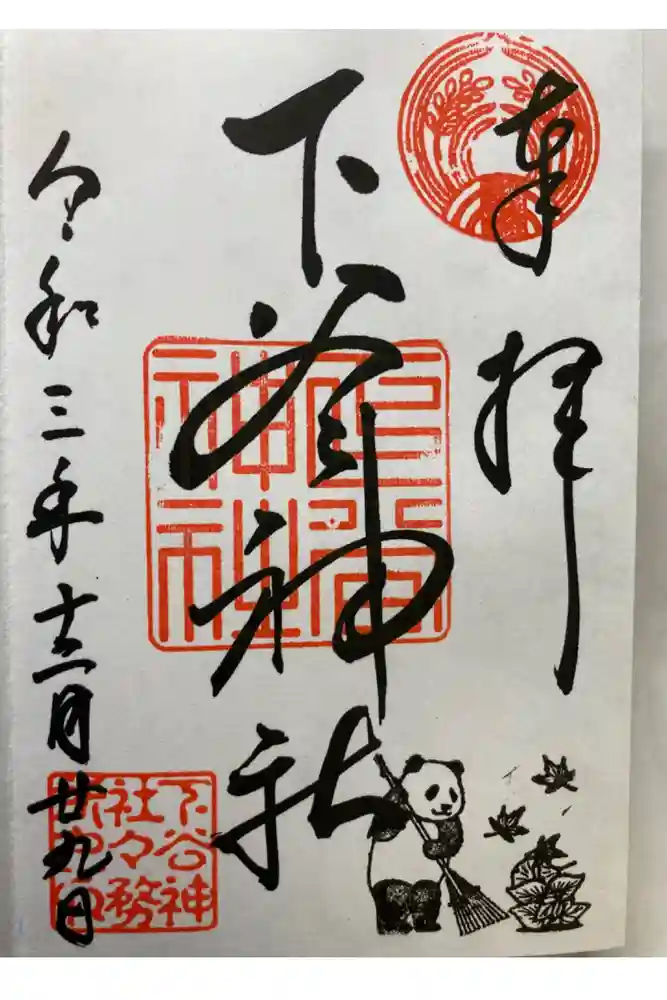 奉拝
下谷神社
下谷
神社
令和三年十二月廿九日
下谷神
社々務
所之印